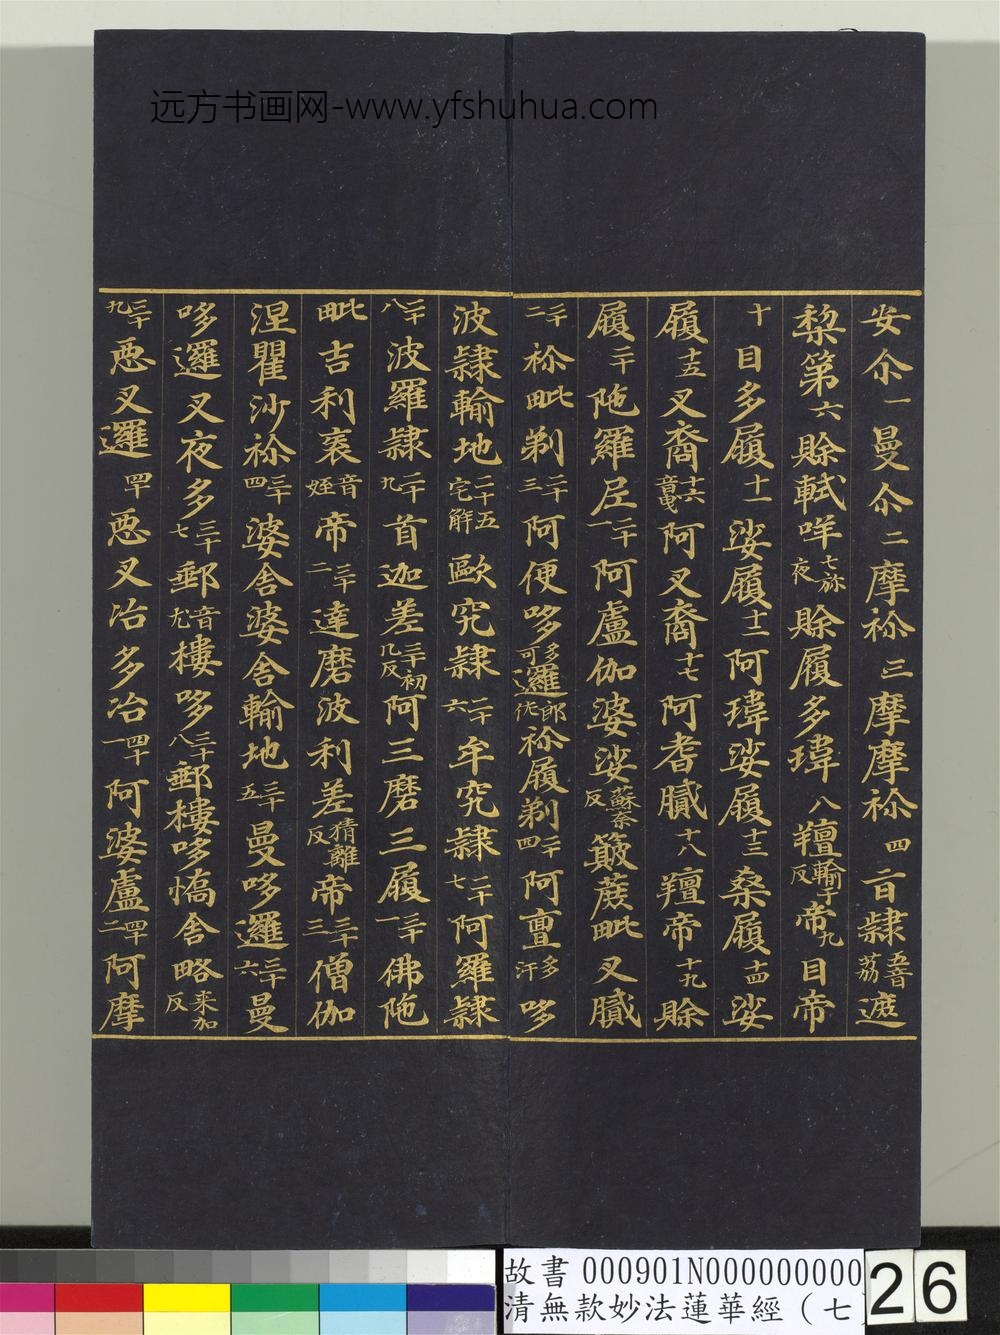 远方书画网-www.yfshuhua.com
安尒一曼尒二摩祢三摩摩祢四旨隸五音荔遮
梨第六賒軾咩七祢夜賒履多瑋八羶輸千反帝九目帝
十目多履十一娑履十二阿瑋娑履十三桑履十四娑
履十五叉裔十六音曳阿叉裔十七阿耆膩十八羶帝十九賒
履二十陁羅尼二十一阿盧伽婆娑蘇奈反簸蔗毗叉膩
二十二祢毗剃二十三阿便哆多可邏郎佐祢履剃二十四阿亶多汗哆
波隸輸地二十五宅解歐究隸二十六牟究隸二十七阿羅隸
二十八波羅隸二十九首迦差三十初几反阿三磨三履三十一佛陁
毗吉利袠音姪帝三十二達磨波利差猜離反帝三十三僧伽
涅瞿沙祢三十四婆舍婆舍輸地三十五曼哆邏三十六曼
哆邏叉夜多三十七郵音尤樓哆三十八郵樓哆憍舍略来加反
三十九惡叉邏四十惡叉冶多冶四十一阿婆盧四十二阿摩
故書 000901N000000000
清無款妙法蓮華經（七
26